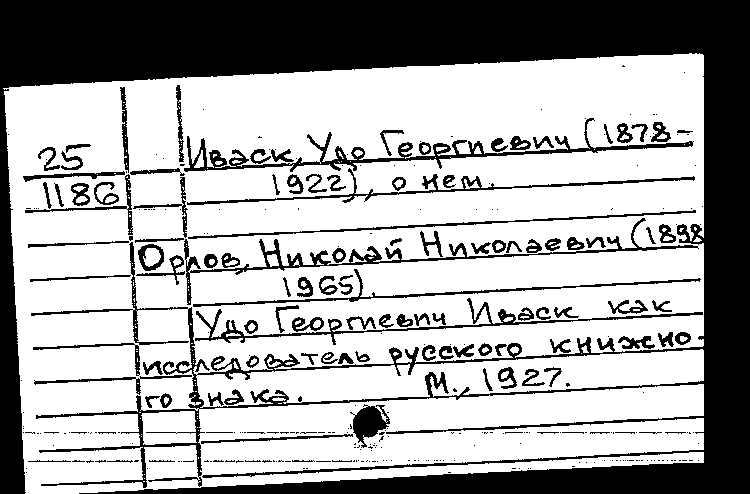 25
1186
Иваск, Удо Георгиевич (1878-
1922), о нем.
Орлов, Николай Николаевич (1898
1965).
Удо Георгиевич Иваск как
исследователь русского книжно-
го знака. М., 1927.